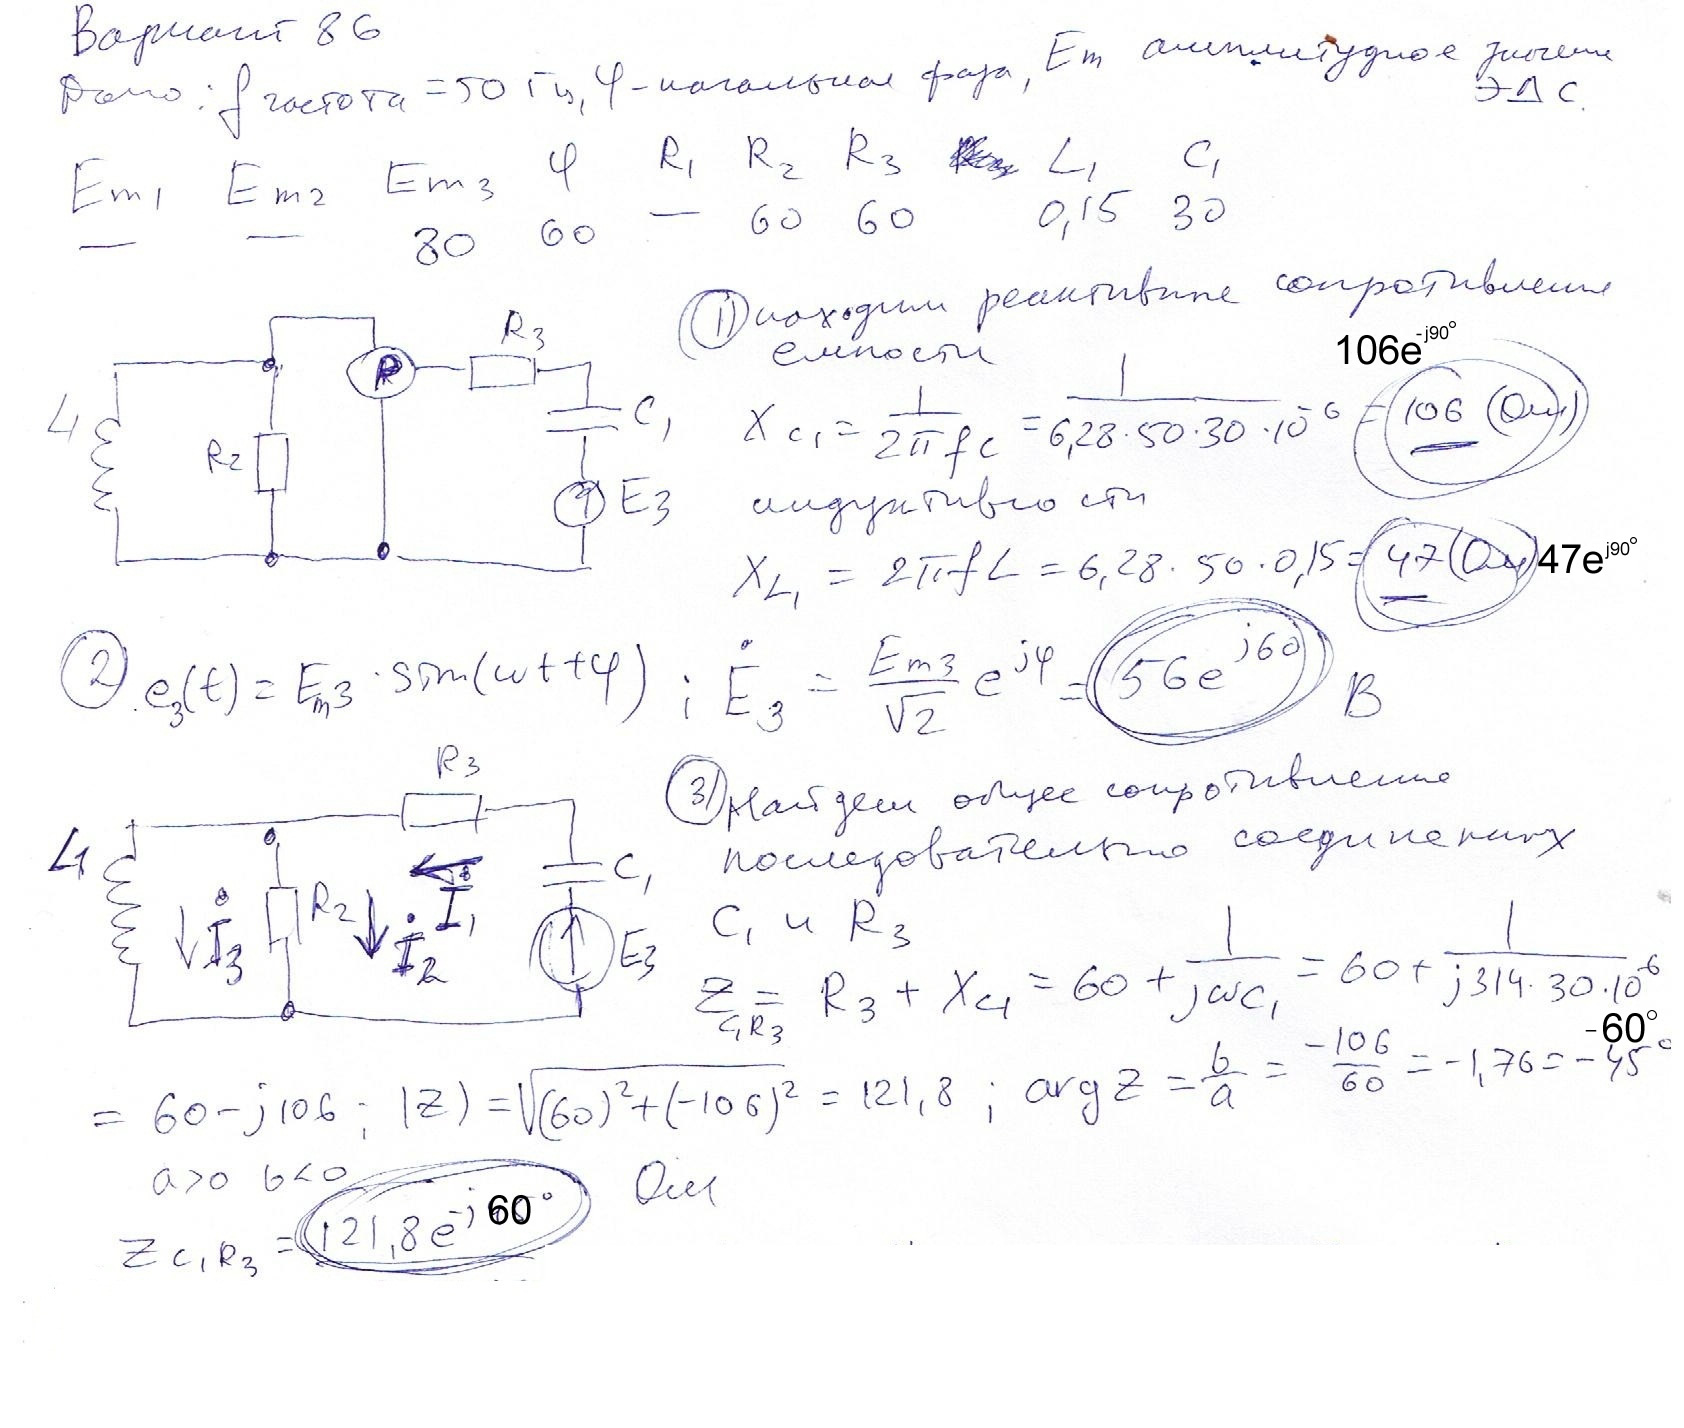 Вариант 86
Дано: f частота = 50 Гц, φ - начальная фаза, Em амплитудное значение ЭДС.
Em1 Em2 Em3 φ R1 R2 R3 L1 C1
— — 80 60 — 60 60 0,15 30
① находим реактивные сопротивления
емкости
106e^-j90°
X_C1 = 1/(2πfC) = 1/(6,28·50·30·10^-6) = 106 (Ом)
индуктивности
X_L1 = 2πfL = 6,28·50·0,15 = 47 (Ом) 47e^j90°
L1 R2 P R3 C1 E3
② e3(t) = Em3·sin(ωt+φ); Ė3 = Em3/√2 e^jφ = 56e^j60 В
L1 İ3 R2 İ2 İ1 R3 C1 E3
③ Найдем общее сопротивление
последовательно соединенных
C1 и R3
Z_C1R3 = R3 + X_C1 = 60 + 1/(jωC1) = 60 + 1/(j314·30·10^-6)
-60°
= 60 - j106; |Z| = √((60)²+(-106)²) = 121,8; arg Z = b/a = -106/60 = -1,76 = -45°
a>0 b<0
Z_C1R3 = 121,8e^-j60° Ом